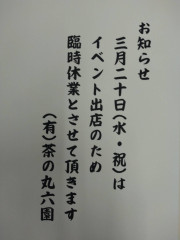 お知らせ
三月二十日(水・祝)は
イベント出店のため
臨時休業とさせて頂きます
(有)茶の丸六園